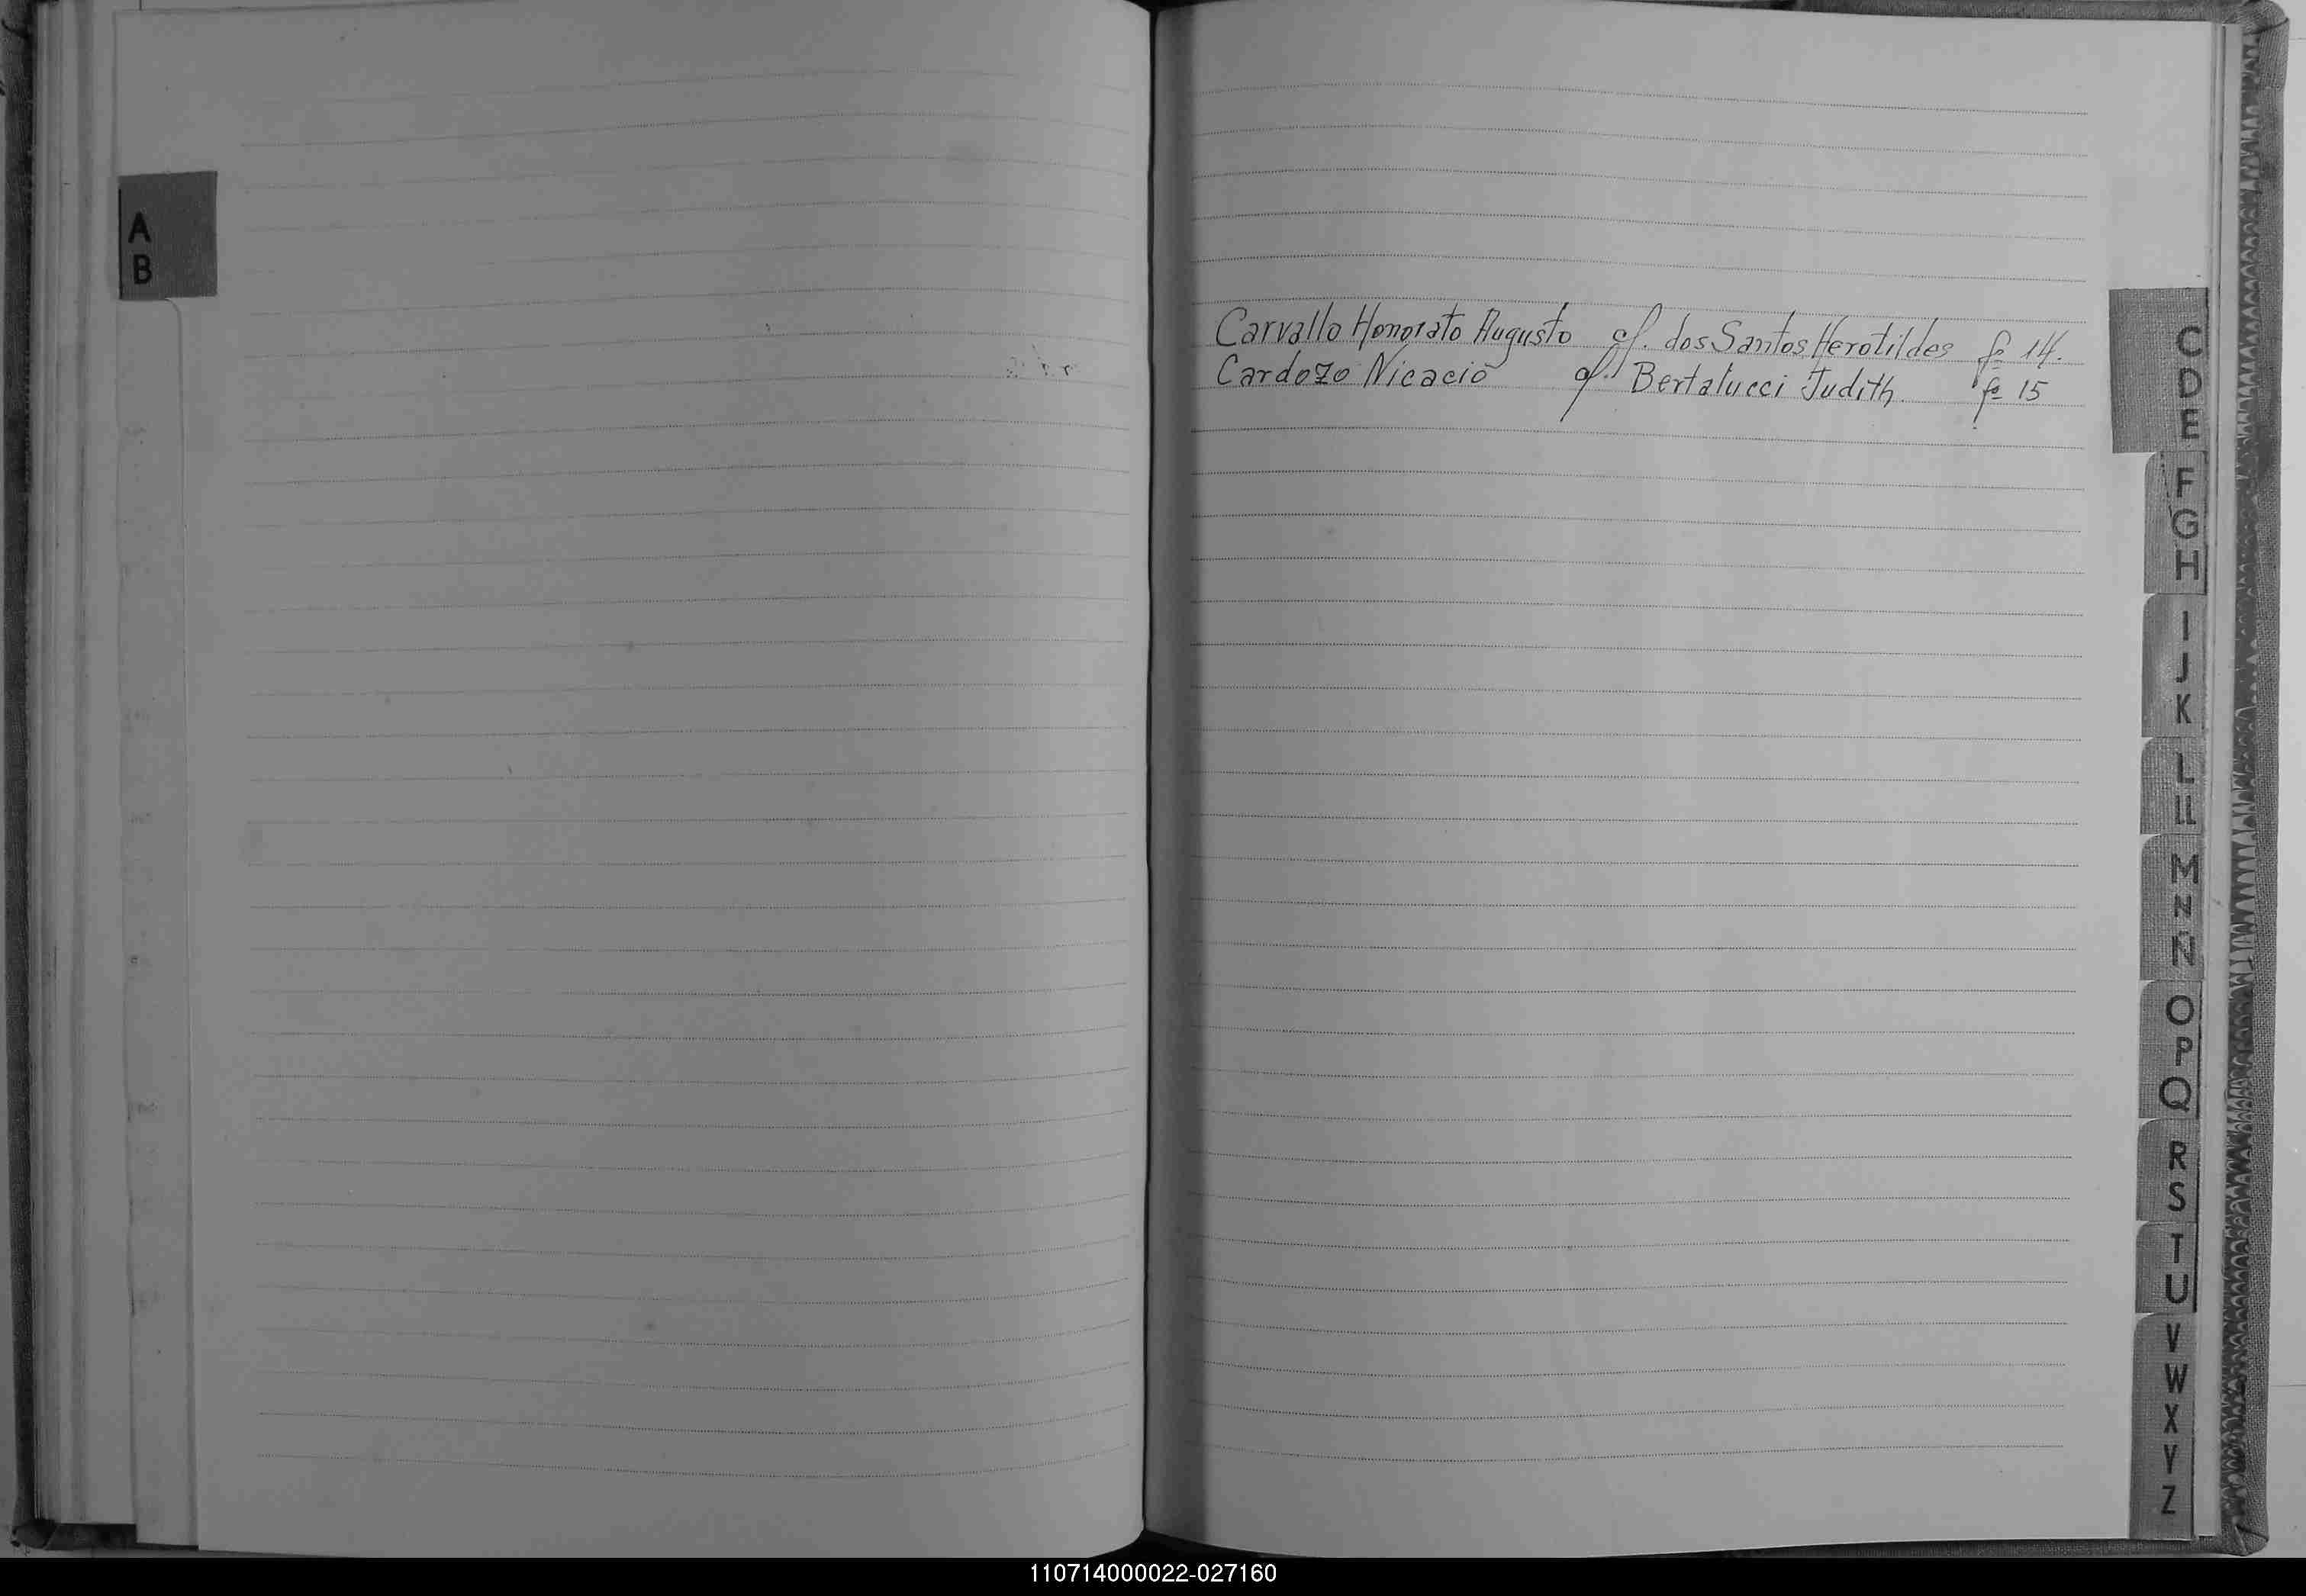 A
B
Carvallo Honorato Augusto cf. dos Santos Herotildes fº 14.
Cardozo Nicacio cf. Bertalucci Judith. fº 15
C
D
E
F
G
H
I
J
K
L
LL
M
N
Ñ
O
P
Q
R
S
T
U
V
W
X
Y
Z
110714000022-027160